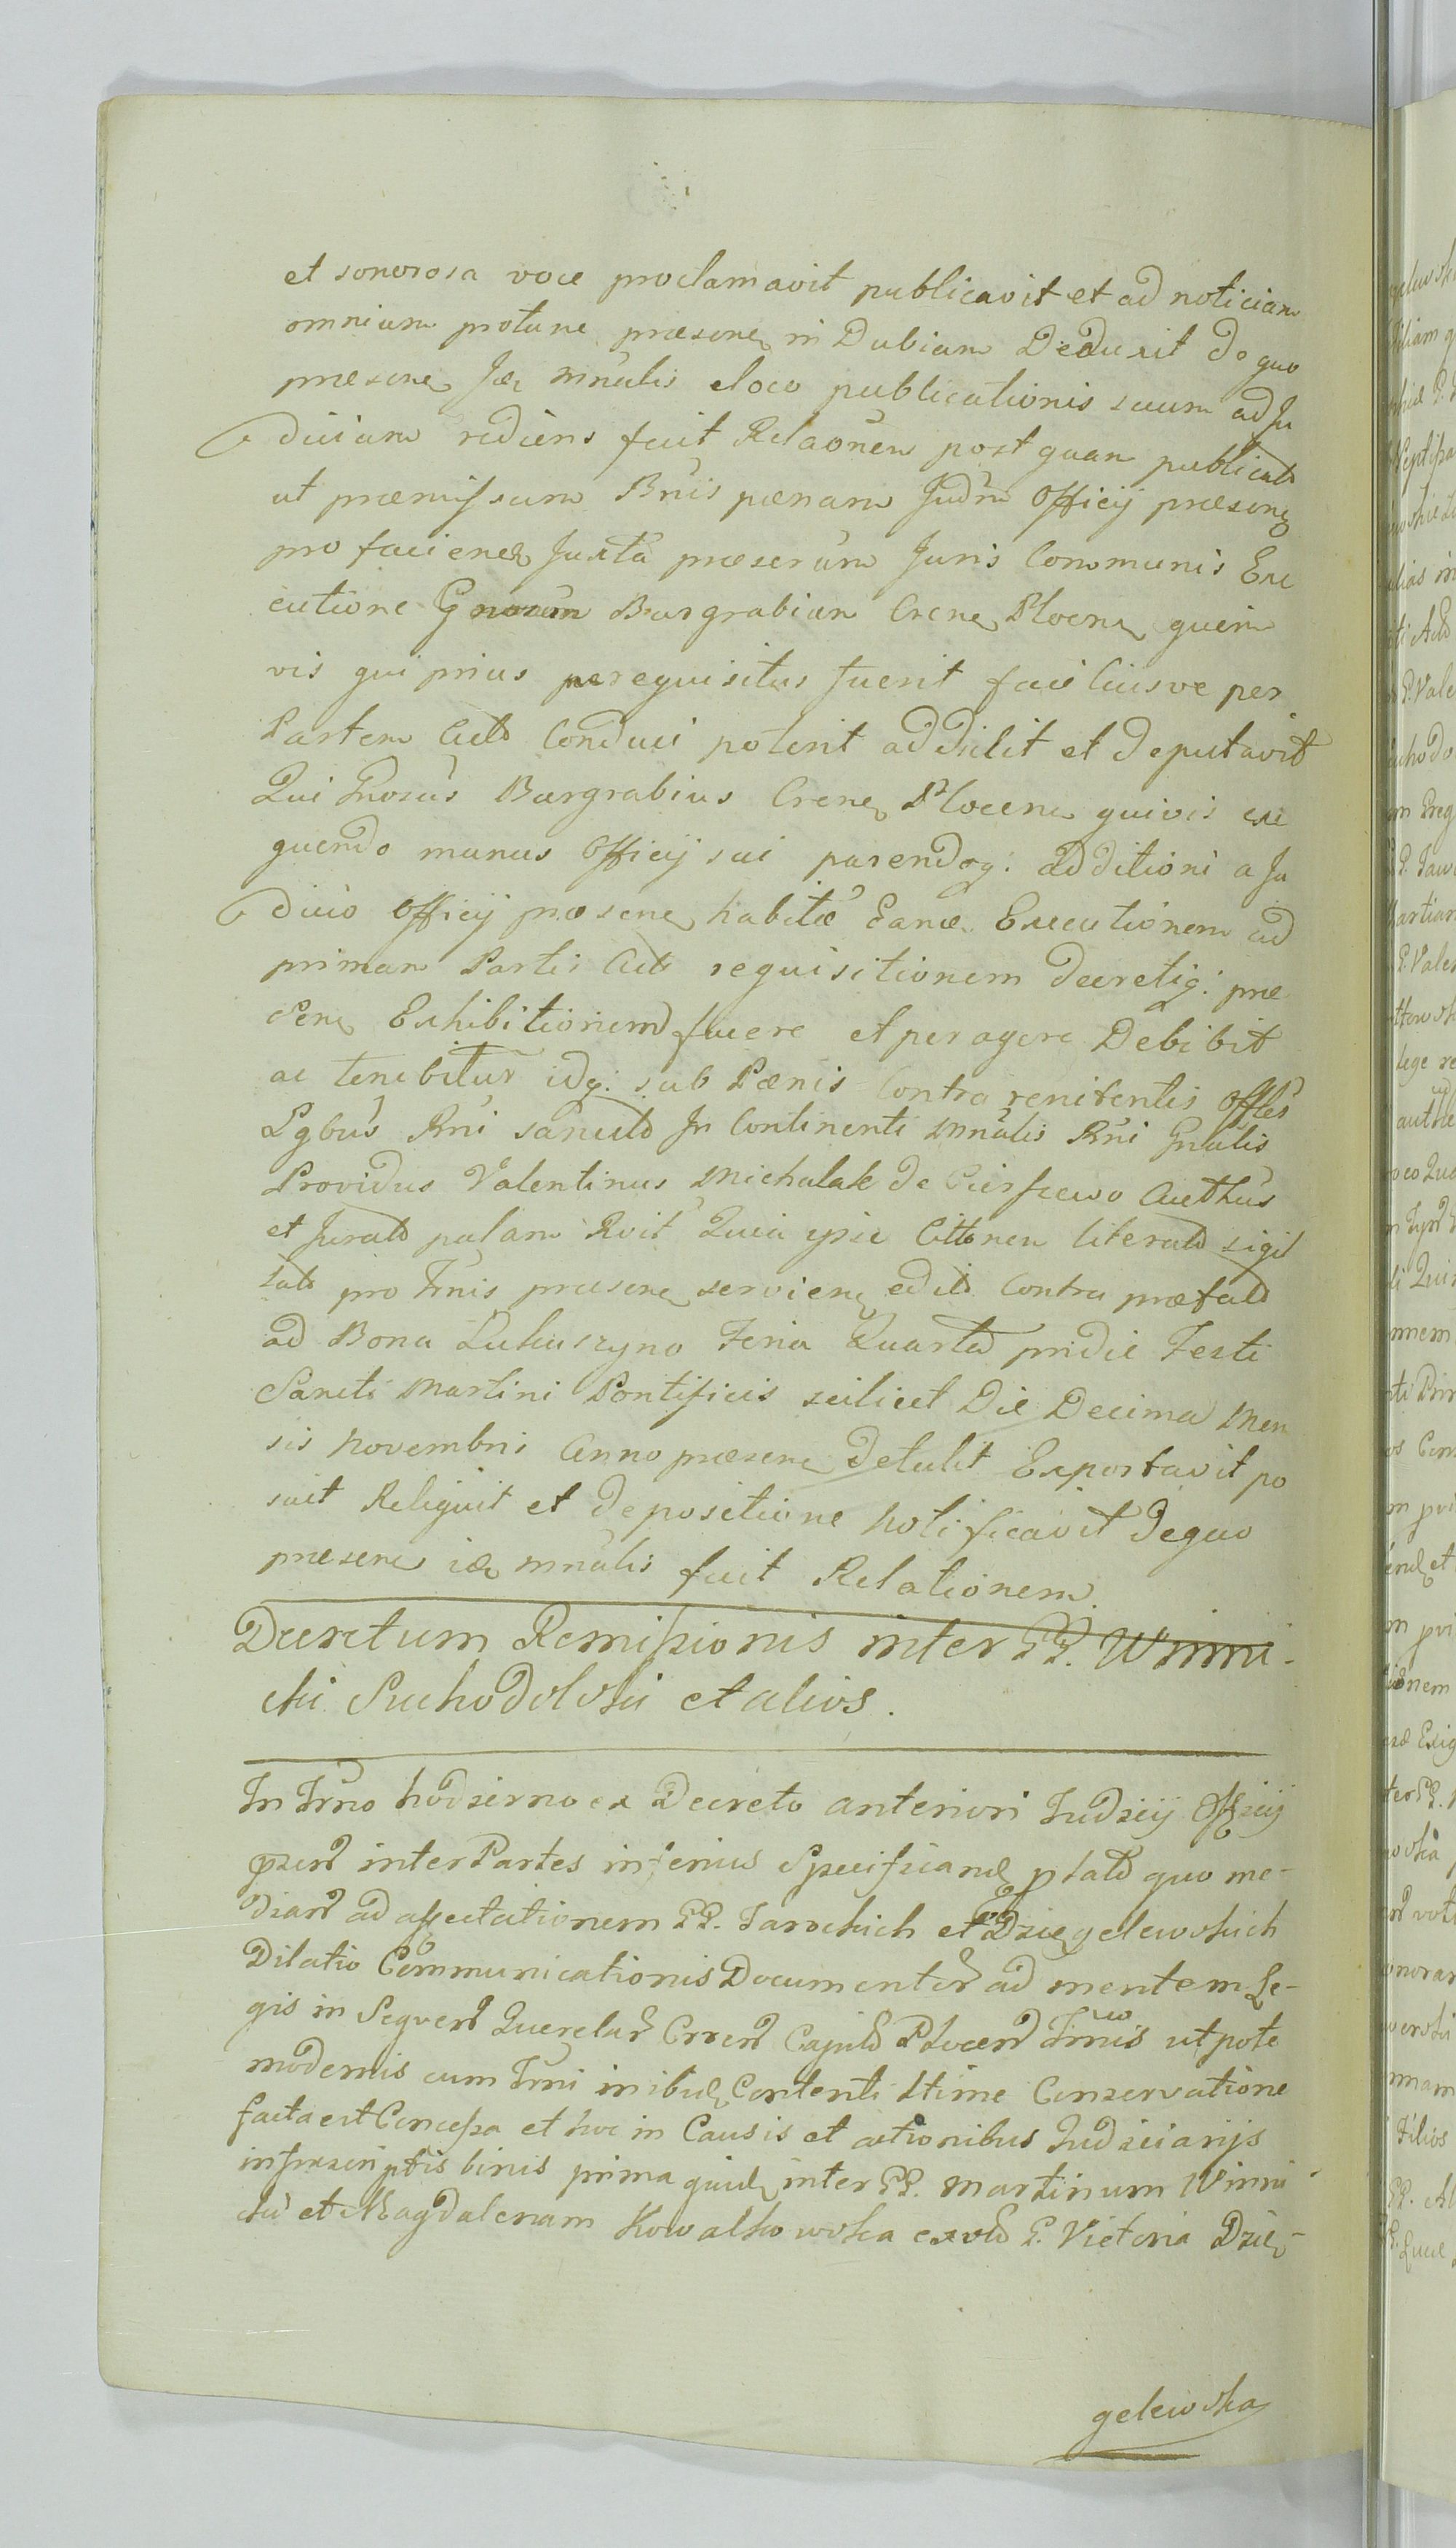 et sonorosa voce proclamavit publicavit et ad noticiam
omnium protunc præsen in Dubiam Deduxit de quo
præsen Jæ mnúlis eloco publicationis suum ad Ju
dicium rediens fecit Relaonem post quam publicato
ut præmissum Bnis pænam Judm Officij præsen
pro facien Juxta præserum Juris Communis Exe
cutione Gnosum Burgrabium Cren Plocen quem
vis qui prius perequisitus fuerit facilius ve per
Partem Acto Conduci poterit addidit et deputavit
Qui Gnosus Burgrabius Cren Plocen quivis exe
quendo munus Officij sui parendoq: additioni a Ju
dicio Officij præsen habitæ Eanæ Executionem ad
primam Partis Act requisitionem decretiq: præ
sen Exhibitionem facere et peragere Debebit
ac tenebitur idq: sub Pænis Contra renitentis Offles
Lgbus Rni sancito In Continenti Mnulis Rni Gnalis
Providus Valentinus Michalak de Authus
et Jurato palam Rvit Quia ipse Cittonem literato sigil
lato pro Trnis præsen servien edito Contra præfato
ad Bona Lukuszyno Feria Quarta pridie Festi
Sancti Martini Pontificis scilicet Die Decima Men
sis Novembris Anno præsen detulit Exportavit po
suit Reliquit et depositione Notificavit Dequo
præsens iæ mnulis fecit Relationem.
Decretum Remissionis inter PP. Winni-
cki Suchodolski et alios.
In Trno hodierno ex Decreto anteriori Judicij Officij
pzen inter Partes inferius Specifican plato quo me-
dian ad affectationem PP. Jarockich et Dzięgelewskich
Dilatio Communicationis Documentor ad mentem Le-
gis in Seqven Querelar Crren Capit Plocen Trnis utpote
modernis cum Trni in ibid Contenti ltime Conservatione
facta est Concessa et hoc in Causis et actionibus Judiciarijs
infrascriptis binis prima quid inter PP. Martinum Winni
cki et Magdalenam Kowalkowska exolo P. Victoria Dzię-
gelewska